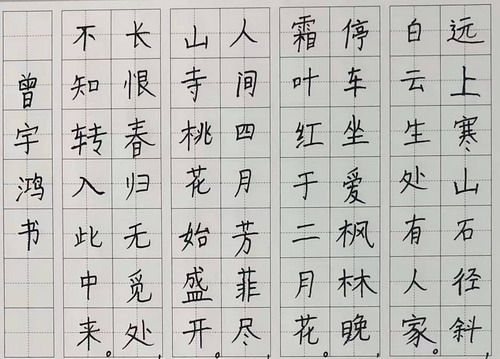 远上寒山石径斜，
白云生处有人家。
停车坐爱枫林晚，
霜叶红于二月花。
人间四月芳菲尽，
山寺桃花始盛开。
长恨春归无觅处，
不知转入此中来。
曾宇鸿书